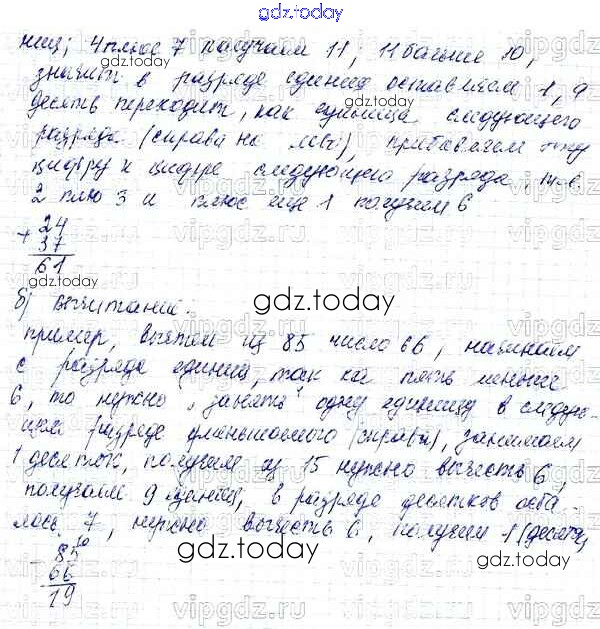 gdz.today
ниц; 4 плюс 7 получаем 11, 11 больше 10,
значит в разряде единиц оставляем 1, а
десять переходит, как единица следующего
разряда (справа на лево), прибавляем эту
цифру к цифре следующего разряда, т.е.
2 плю 3 и плюс еще 1 получим 6
+ 24
37
61
gdz.today
б) Вычитание.
gdz.today
пример, вычтем из 85 число 66, начинаем
с разряда единиц, так ка пять меньше
6, то нужно „занять" одну единицу в следую-
щем разряде уменьшаемого (справа), занимаем
1 десяток, получаем из 15 нужно вычесть 6,
получаем 9 единиц, в разряде десятков оста-
лось 7, нужно вычесть 6, получим 1 (десяток)
gdz.today
- 85 10
66
19
gdz.today
vipgdz.ru